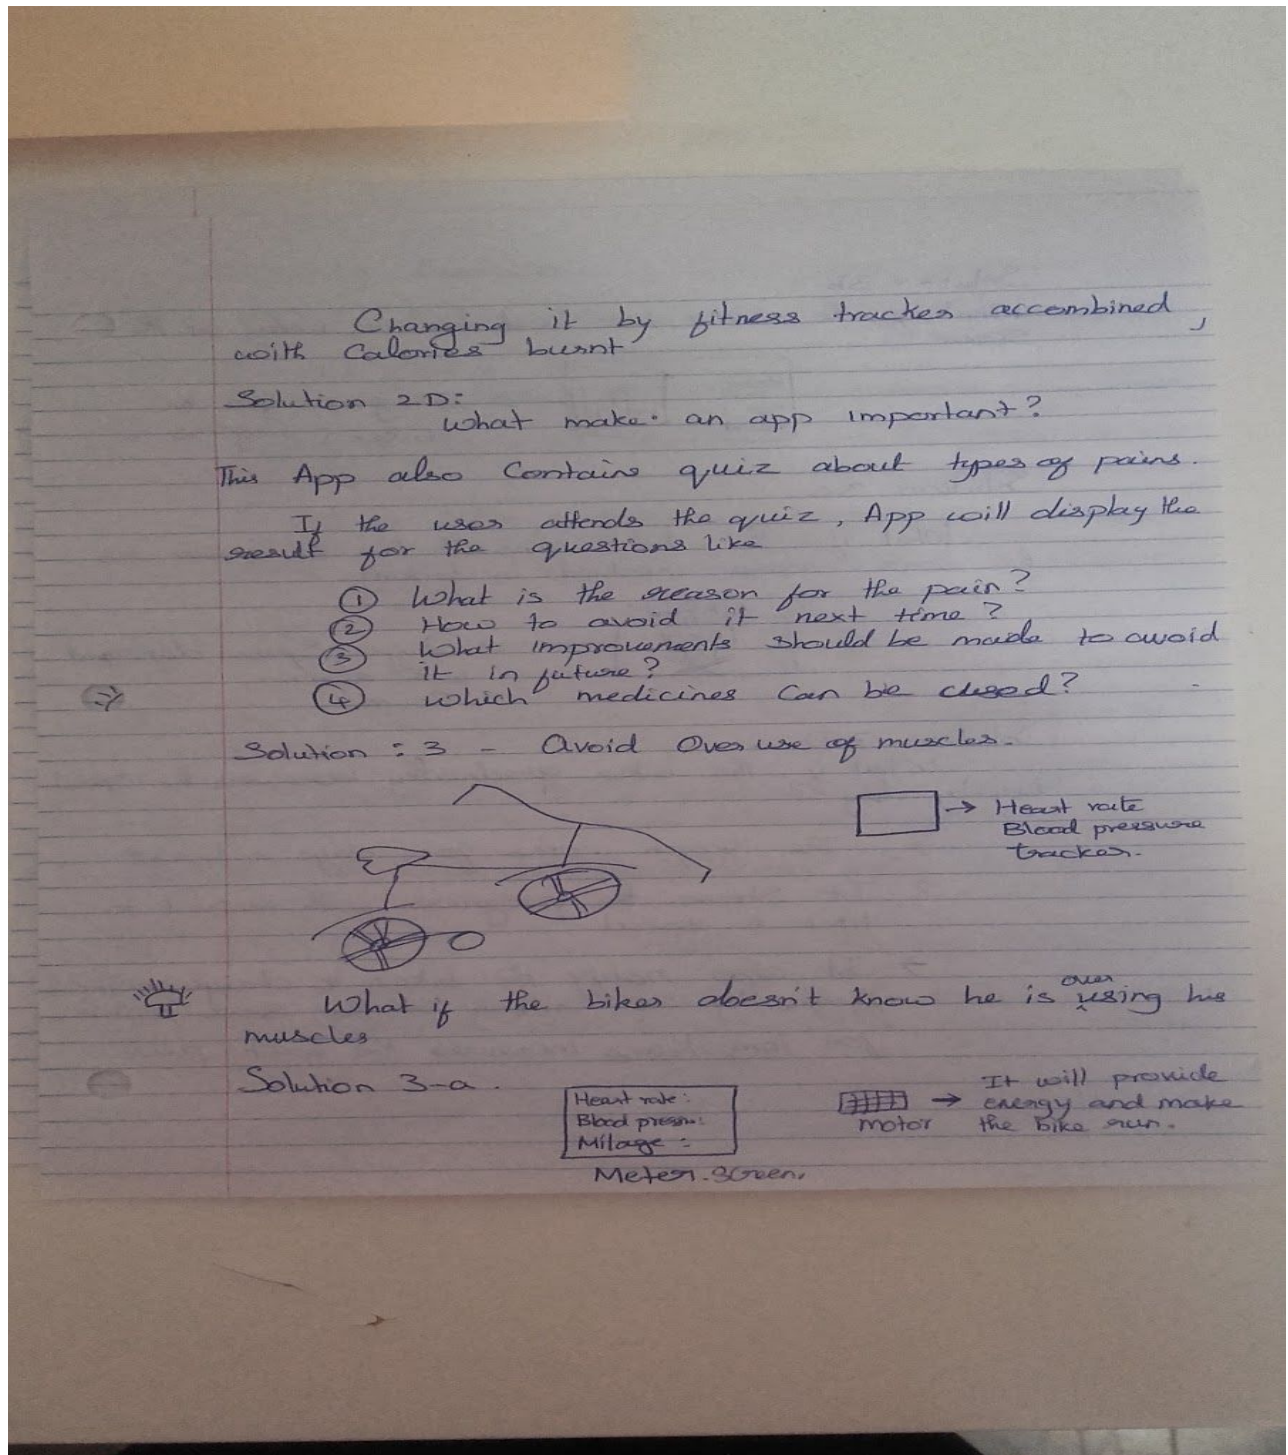 Changing it by fitness tracker accombined,
with Calories burnt
Solution 2D:
What make an app important?
This App also Contains quiz about types of pains.
If the user attends the quiz, App will display the
result for the questions like
① What is the reason for the pain?
② How to avoid it next time?
③ What improvements should be made to avoid
it in future?
④ which medicines can be used?
Solution : 3 - Avoid Over use of muscles.
→ Heart rate
Blood pressure
tracker.
What if the biker doesn't know he is over using his
muscles
Solution 3-a.
Heart rate:
Blood pressu:
Milage :
Meter screen.
motor
→ It will provide
energy and make
the bike run.